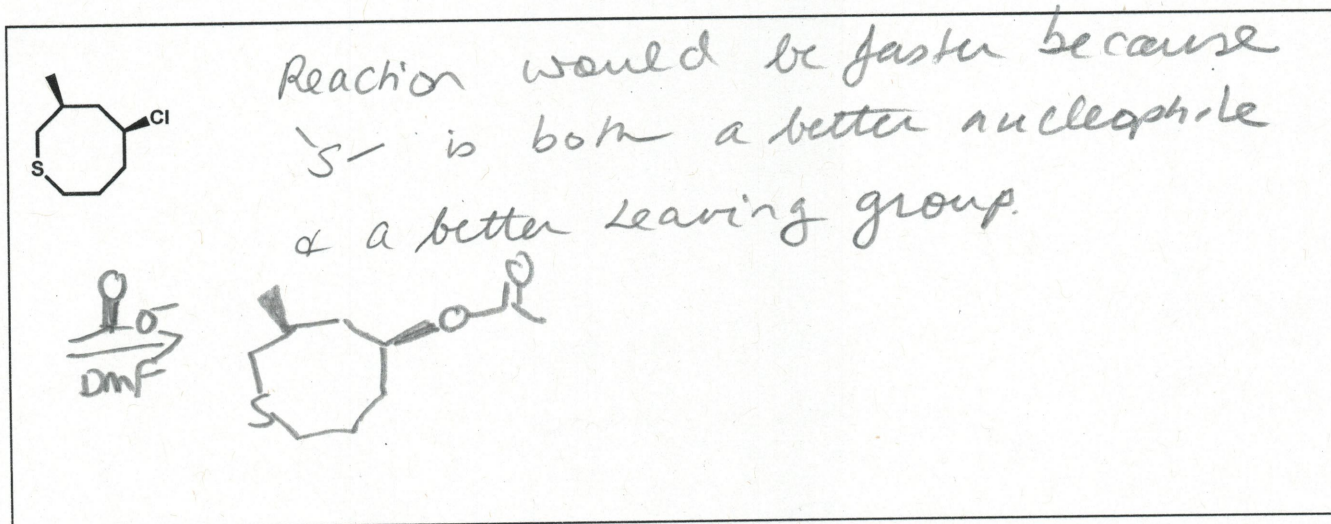 Reaction would be faster because
Cl
S is both a better nucleophile
S
& a better leaving group.
O
O-
DMF
O
O
S